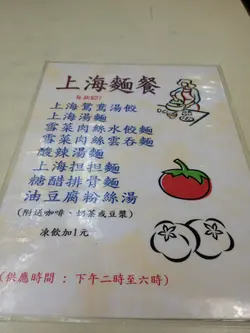 上海麵餐
上海鴛鴦湯餃
上海湯麵
雪菜肉絲水餃麵
雪菜肉絲雲吞麵
酸辣湯麵
上海担担麵
糖醋排骨麵
油豆腐粉絲湯
(附送咖啡、奶茶或豆漿)
凍飲加1元
(供應時間 : 下午二時至六時)